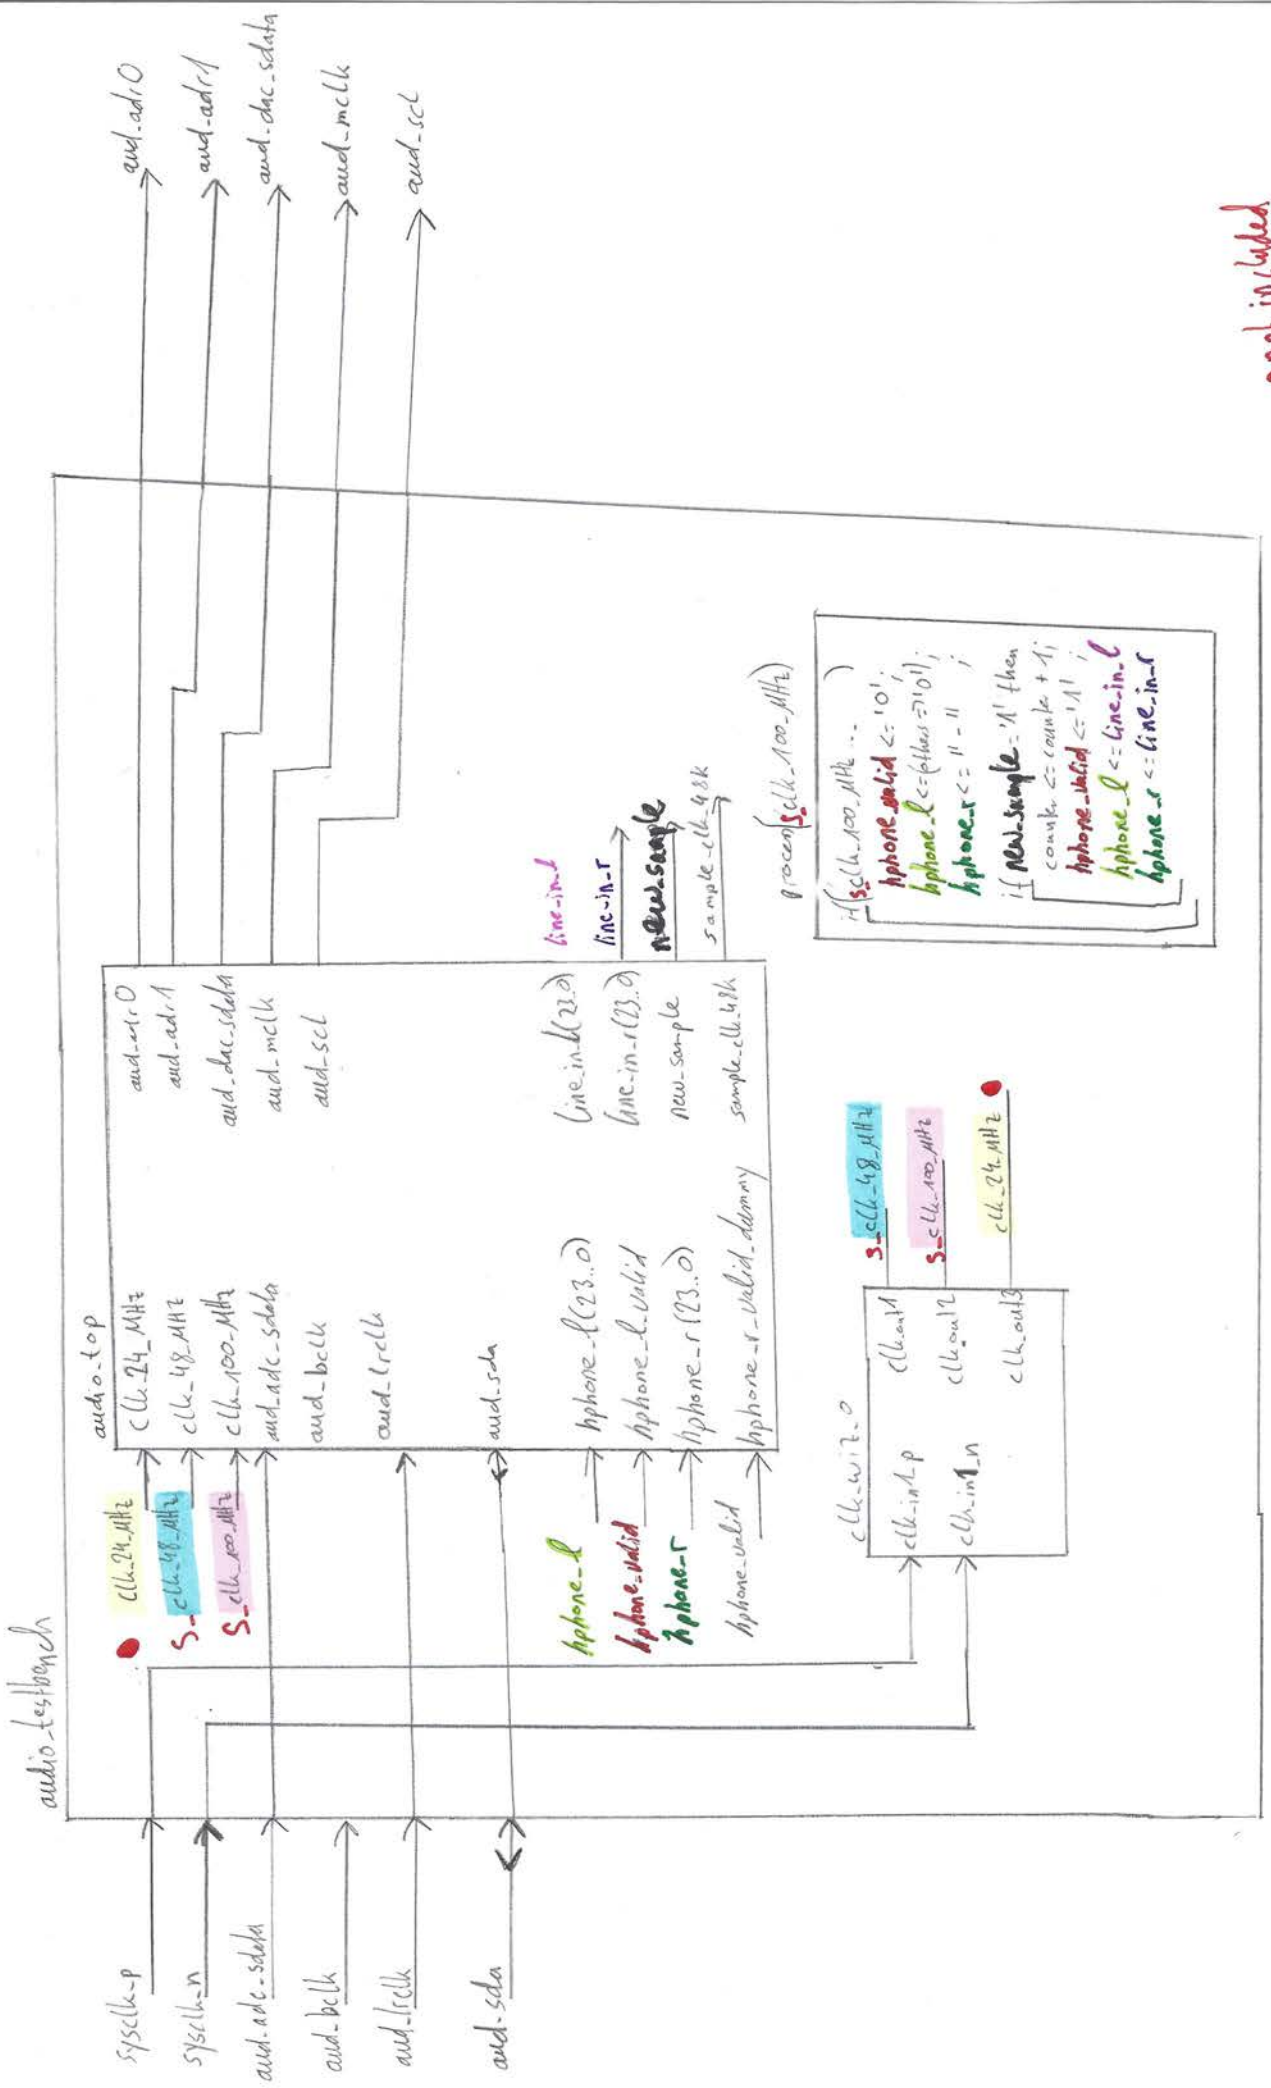 audio_testbench
sysclk_p
sysclk_n
aud_adc_sdata
aud_bclk
aud_lrclk
aud_sda
clk_24_MHz
S_clk_48_MHz
S_clk_100_MHz
hphone_l
hphone_valid
hphone_r
hphone_valid
audio_top
clk_24_MHz
clk_48_MHz
clk_100_MHz
aud_adc_sdata
aud_bclk
aud_lrclk
aud_sda
hphone_l(23..0)
hphone_l_valid
hphone_r(23..0)
hphone_r_valid_dammy
aud_adr0
aud_adr1
aud_dac_sdata
aud_mclk
aud_scl
line_in_l(23..0)
line_in_r(23..0)
new_sample
sample_clk_48k
line_in_l
line_in_r
new_sample
sample_clk_48k
aud_adr0
aud_adr1
aud_dac_sdata
aud_mclk
aud_scl
clk_wiz_0
clk_in1_p
clk_in1_n
clk_out1
clk_out2
clk_out3
S_clk_48_MHz
S_clk_100_MHz
clk_24_MHz
process(S_clk_100_MHz)
if(S_clk_100_MHz ... )
hphone_valid <= '0';
hphone_l <= (others => '0');
hphone_r <= " - " ;
if new_sample = '1' then
counter <= counter + 1;
hphone_valid <= '1' ;
hphone_l <= line_in_l
hphone_r <= line_in_r
included